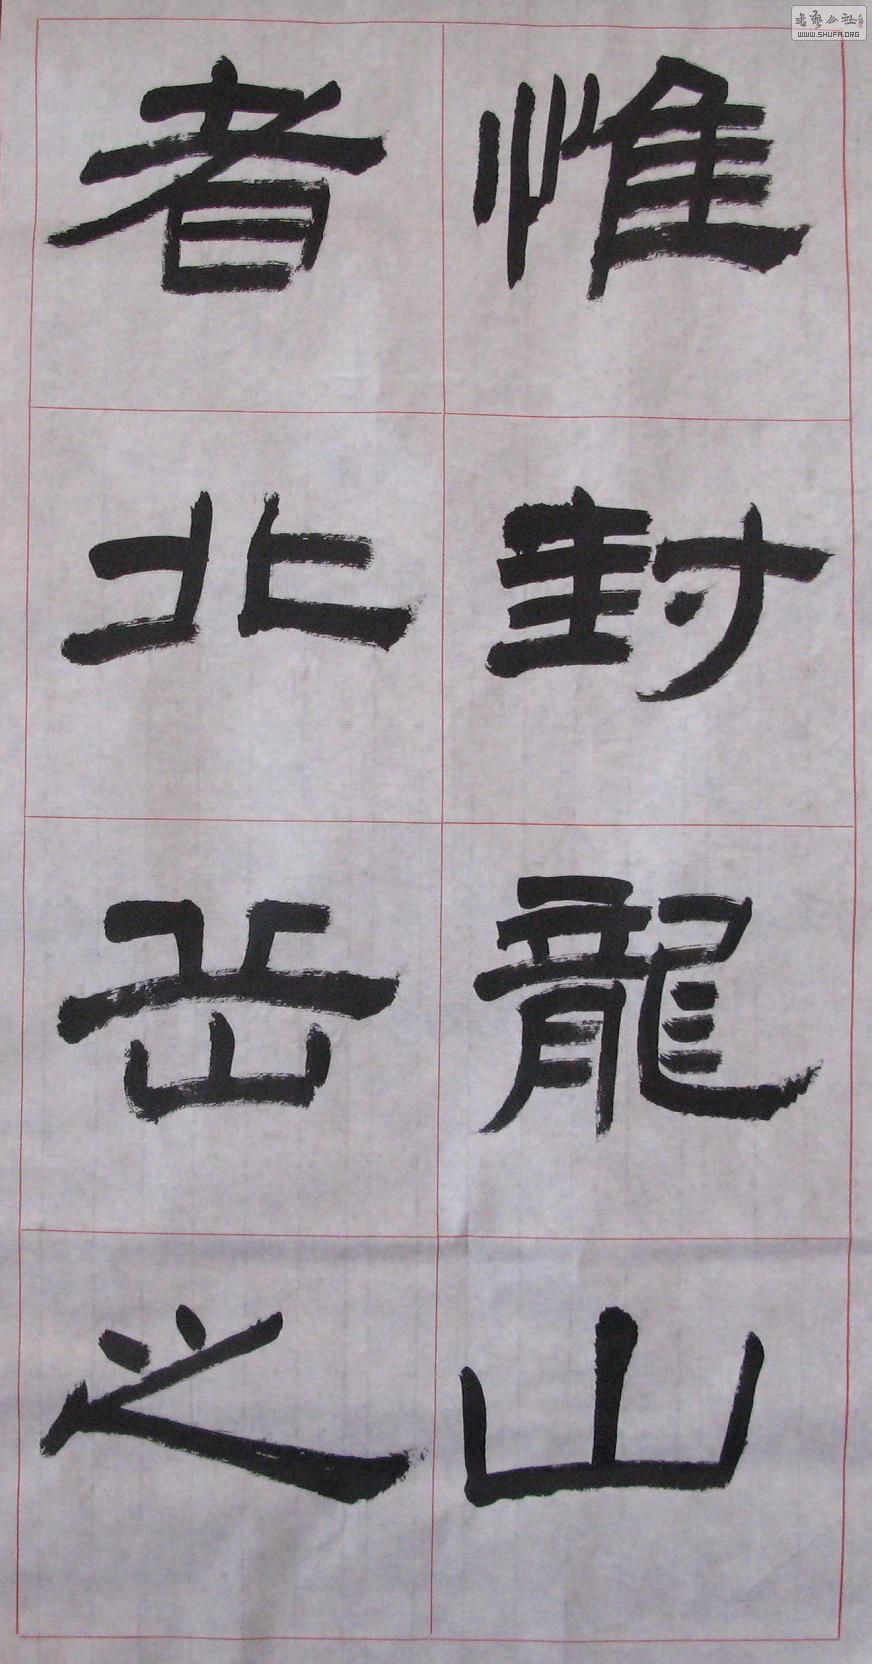 惟封龍山
者北岳之
書藝公社
WWW.SHUFA.ORG